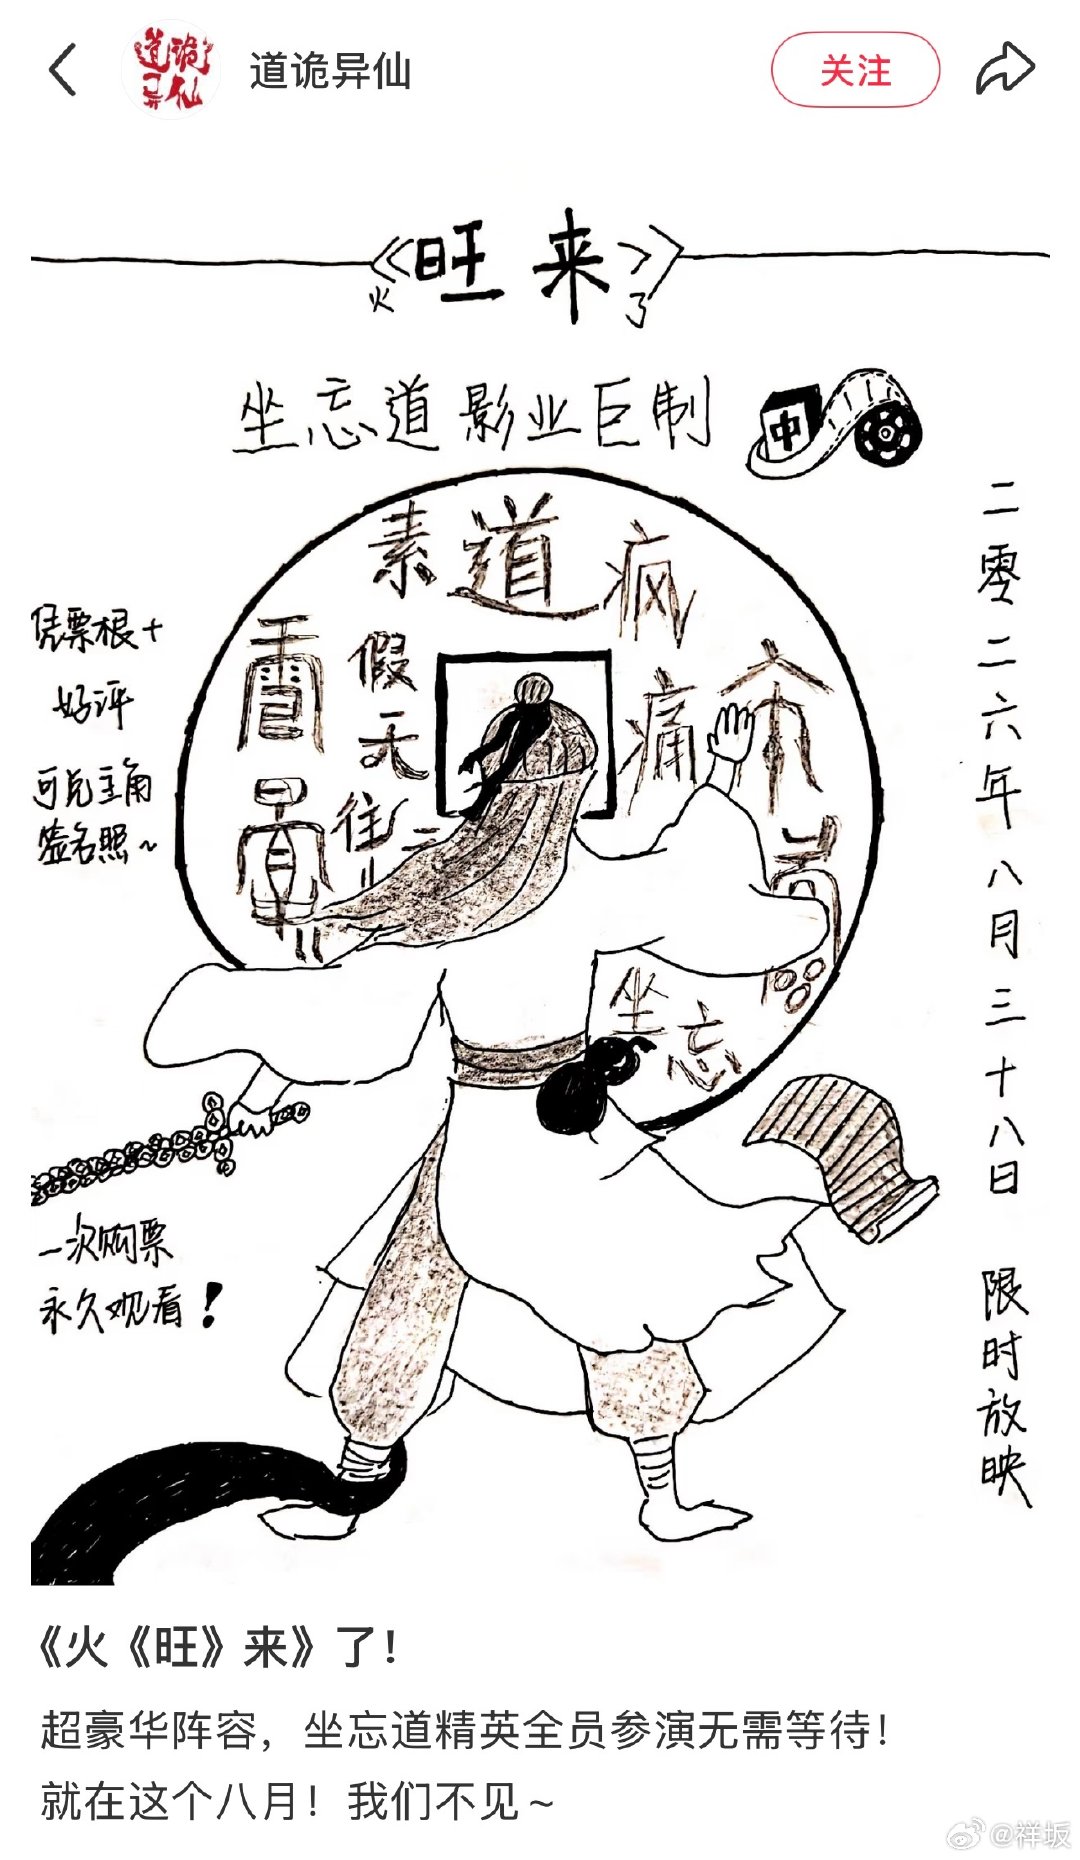 道诡异仙
道诡异仙
关注
《旺来》
火 了
坐忘道影业巨制
中
素 道 疯
假
天
往
痛
坐忘
凭票根+
好评
可兑主角
签名照~
二零二六年八月三十八日 限时放映
一次购票
永久观看!
《火《旺》来》了!
超豪华阵容,坐忘道精英全员参演无需等待!
就在这个八月!我们不见~
@祥坂